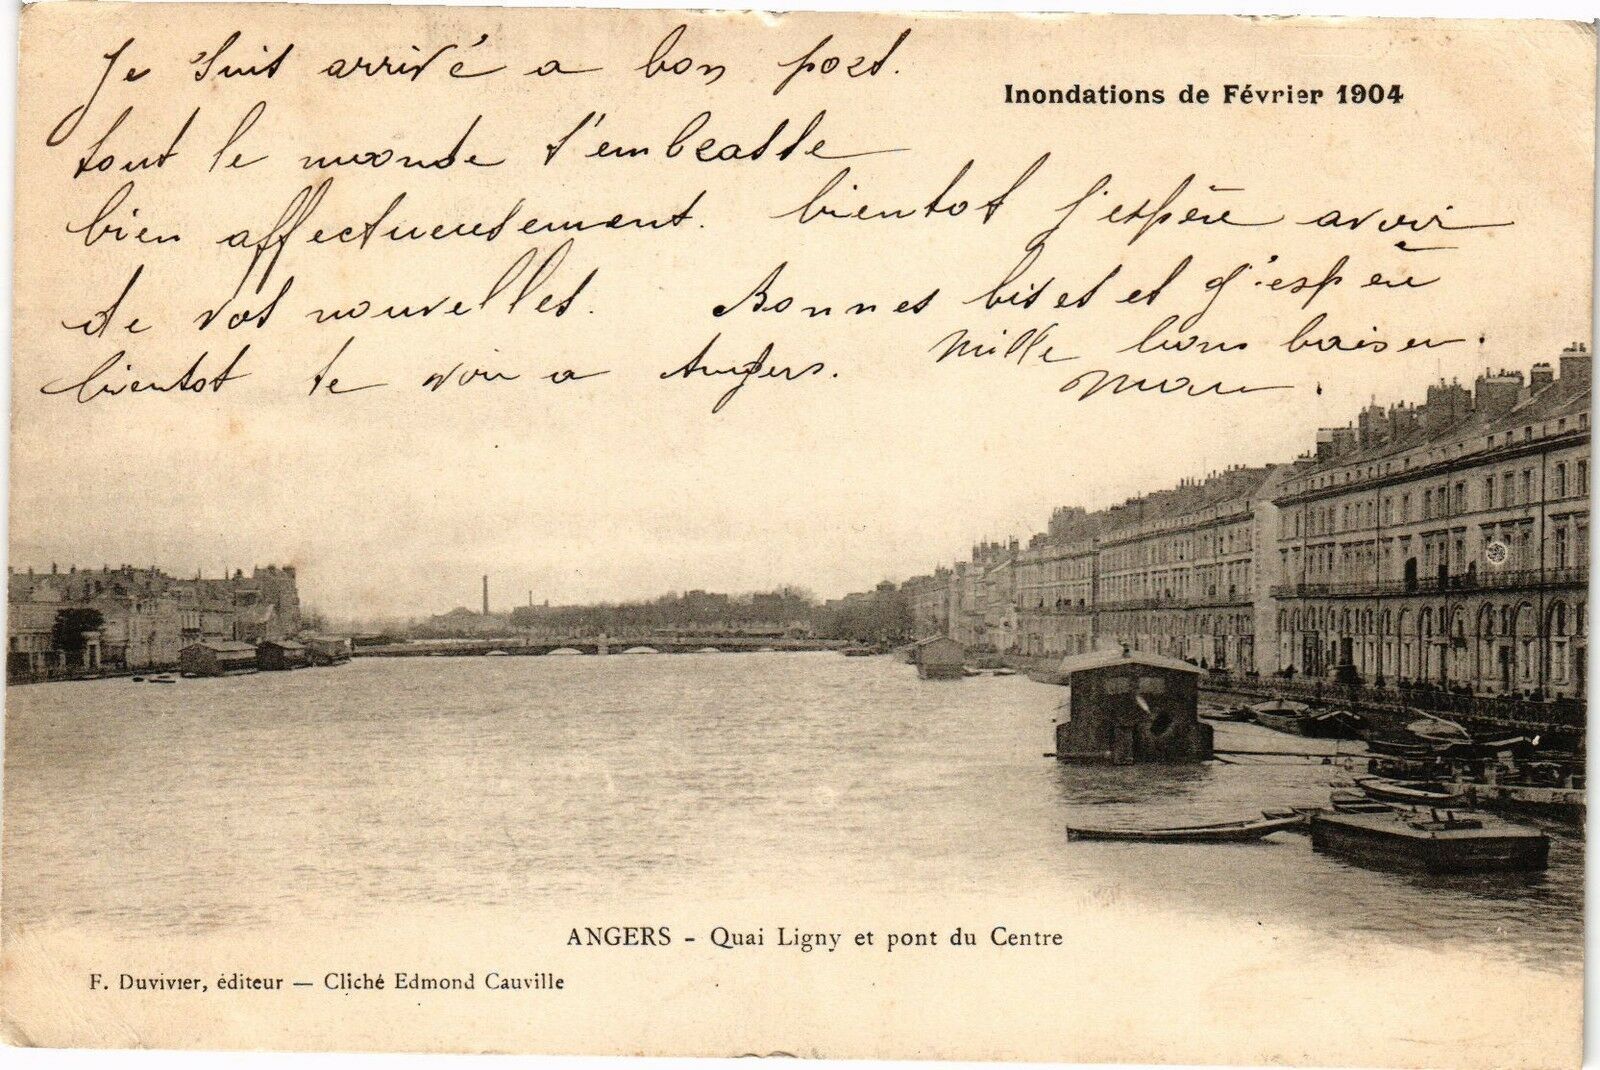 Je suis arrivé a bon port.
Inondations de Février 1904
tout le monde t'embrasse
bien affectueusement. bientot j'espère avoir
de vos nouvelles. Bonnes bises et j'espère
bientot te voir a Angers. Mille bons baiser.
ANGERS - Quai Ligny et pont du Centre
F. Duvivier, éditeur — Cliché Edmond Cauville